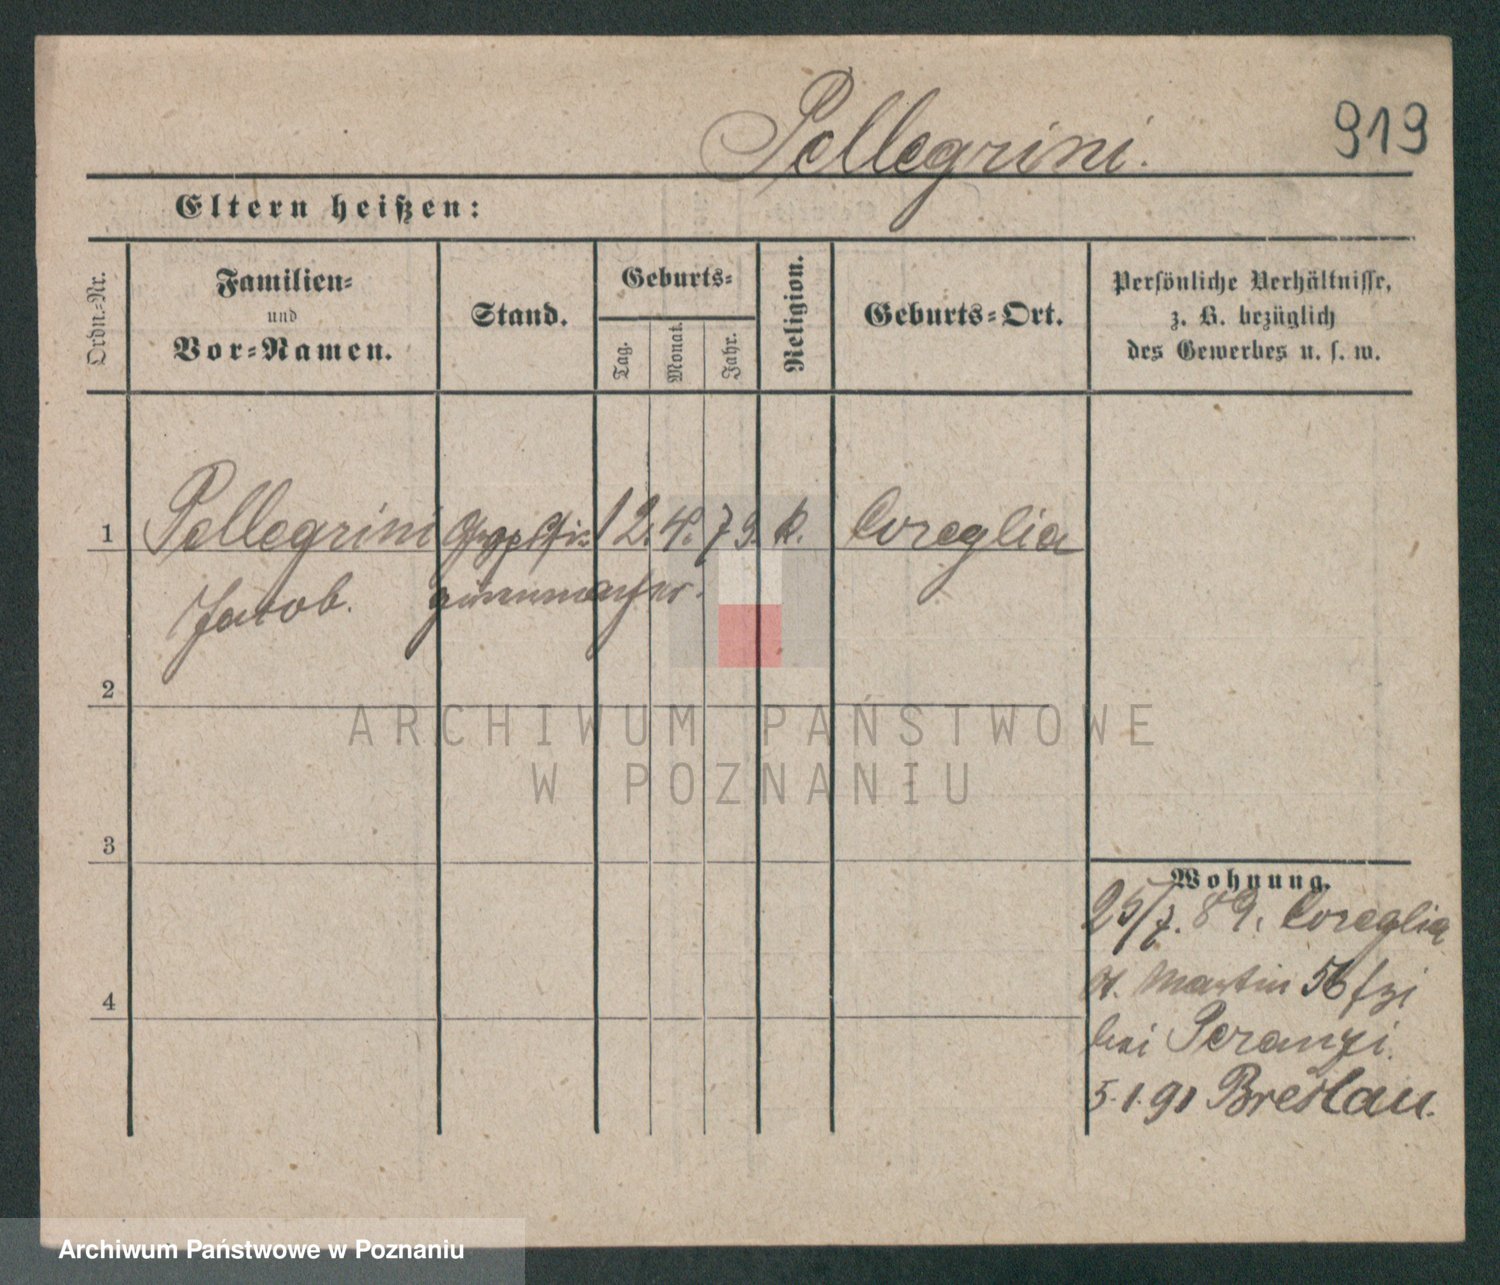 Pellegrini.
919
Eltern heißen:
Ordn.-Nr.
Familien-
und
Vor-Namen.
Stand.
Geburts-
Tag.
Monat.
Jahr.
Religion.
Geburts-Ort.
Persönliche Verhältnisse,
z. B. bezüglich
des Gewerbes u. s. w.
1 Pellegrini Gypsfi- 12. 4. 79. k. Coreglia
Jacob. gurenmacher.
2
ARCHIWUM PAŃSTWOWE
W POZNANIU
3
Wohnung.
25/7. 89. Coreglia
4
St. Martin 56
bei Peranzi.
5.1.91 Breslau.
Archiwum Państwowe w Poznaniu